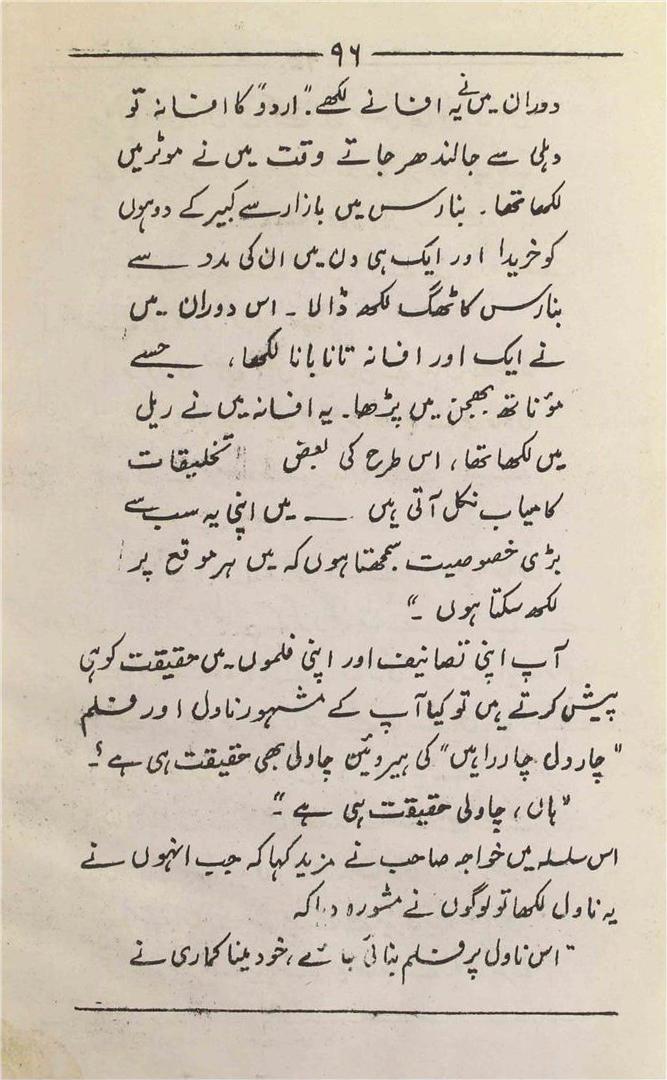 ۹۶
دوران میں نے یہ افسانے لکھے۔ "اردو" کا افسانہ تو
دہلی سے جالندھر جاتے وقت میں نے موٹر میں
لکھا تھا۔ بنارس میں بازار سے کبیر کے دوہوں
کو خریدا اور ایک ہی دن میں ان کی مدد سے
بنارس کا ٹھگ لکھ ڈالا ۔ اس دوران میں
نے ایک اور افسانہ تانا بانا لکھا، جسے
مؤناتھ بھنجن میں پڑھا۔ یہ افسانہ میں نے ریل
میں لکھا تھا، اس طرح کی بعض تخلیقات
کامیاب نکل آتی ہیں ــــ میں اپنی یہ سب سے
بڑی خصوصیت سمجھتا ہوں کہ میں ہر موقع پر
لکھ سکتا ہوں ۔"
آپ اپنی تصانیف اور اپنی فلموں میں حقیقت کو ہی
پیش کرتے ہیں تو کیا آپ کے مشہور ناول اور فلم
"چار دل چار راہیں" کی ہیروئین چاولی بھی حقیقت ہی ہے؟۔
"ہاں، چاولی حقیقت ہی ہے ۔"
اس سلسلہ میں خواجہ صاحب نے مزید کہا کہ جب انہوں نے
یہ ناول لکھا تو لوگوں نے مشورہ دیا کہ
"اس ناول پر فلم بنائی جائے، خود مینا کماری نے